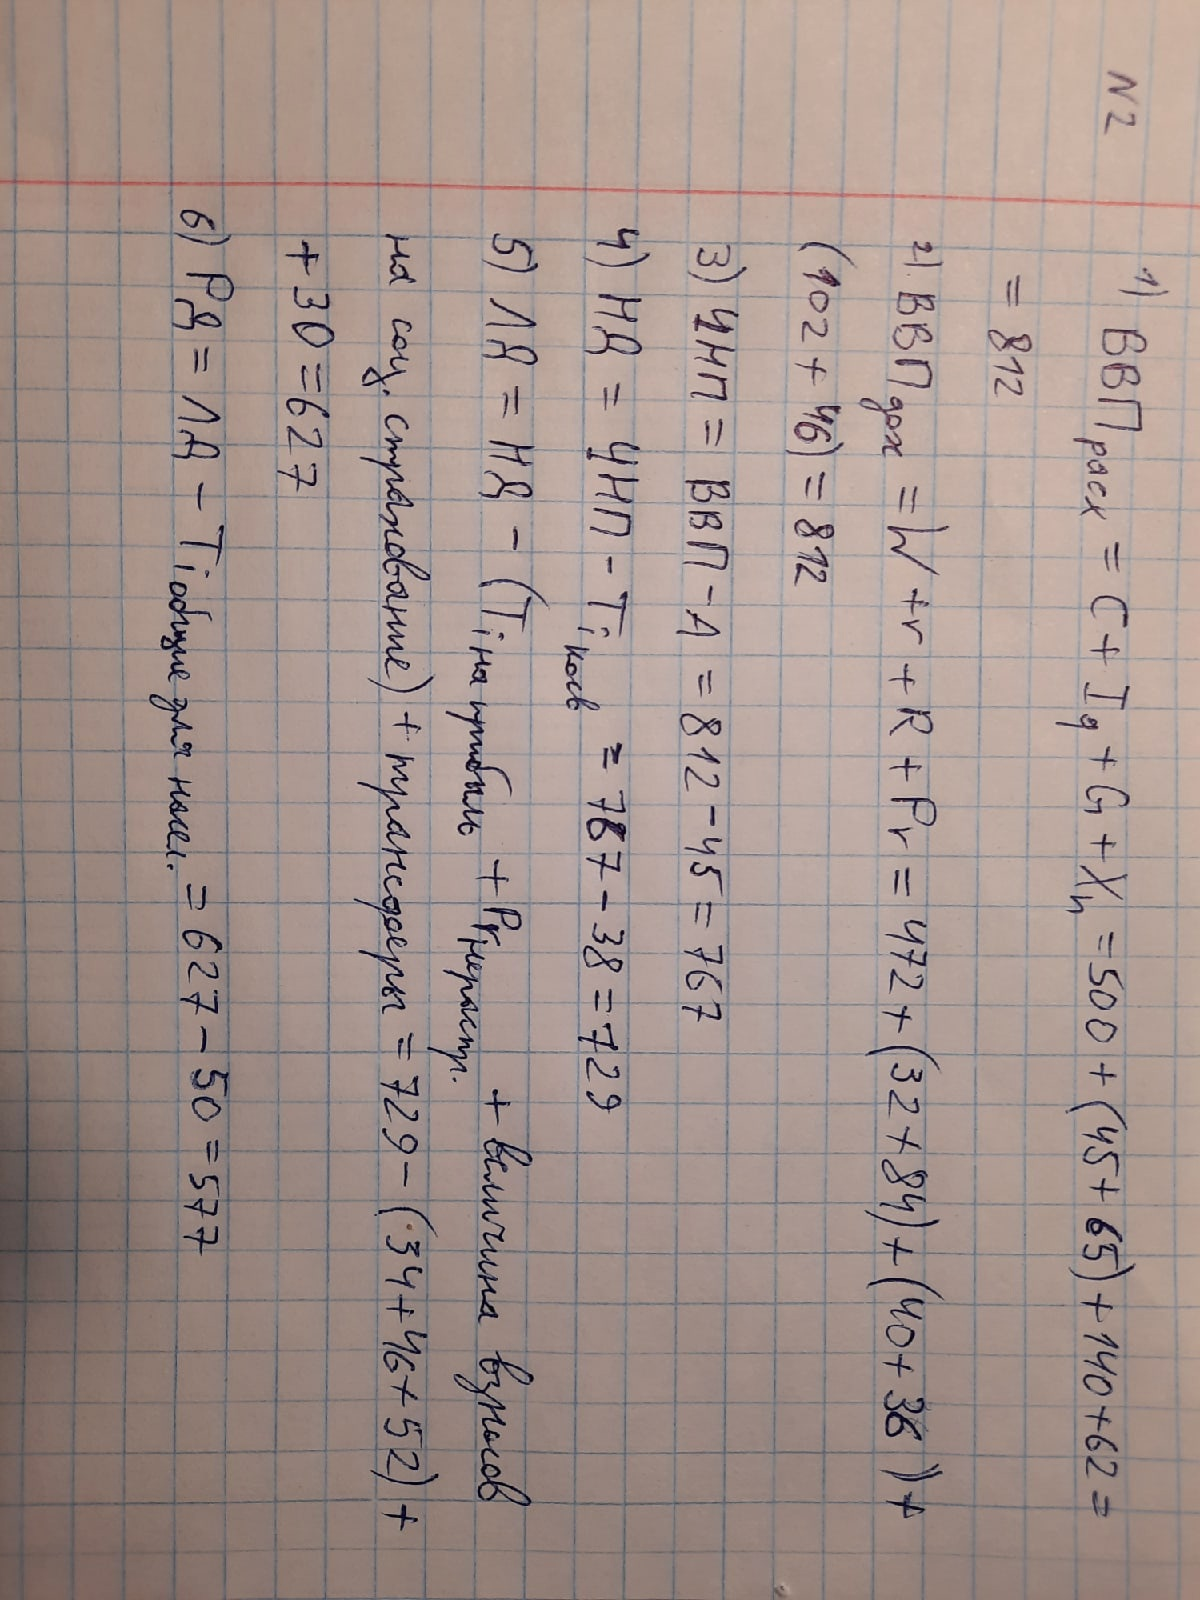 N2
1) ВВПрасх = C + Ig + G + Xn = 500 + (45 + 65) + 140 + 62 =
= 812
2) ВВПдох = W + r + R + Pr = 472 + (32 + 84) + (40 + 36) +
(102 + 46) = 812
3) ЧНП = ВВП - А = 812 - 45 = 767
4) НД = ЧНП - Ti косв = 767 - 38 = 729
5) ЛД = НД - (Ti на прибыль + Pr нераспр. + величина взносов
на соц. страхование) + трансферы = 729 - (34 + 46 + 52) +
+ 30 = 627
6) РД = ЛД - Ti общие для насел. = 627 - 50 = 577